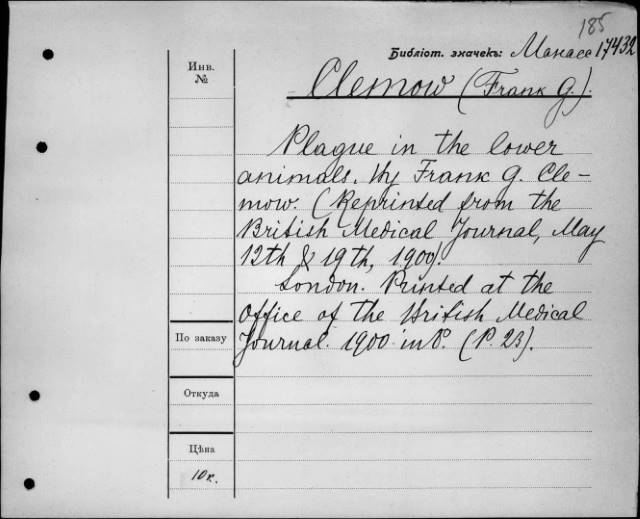 185
Библіот. значекъ: Манасе 17432
Инв.
№
Clemow (Frank G.).
Plague in the lower
animals, by Frank G. Cle-
mow. (Reprinted from the
British Medical Journal, May
12th & 19th, 1900).
London. Printed at the
Office of the British Medical
Journal. 1900. in 8. (P. 23).
По заказу
Откуда
Цѣна
10к.